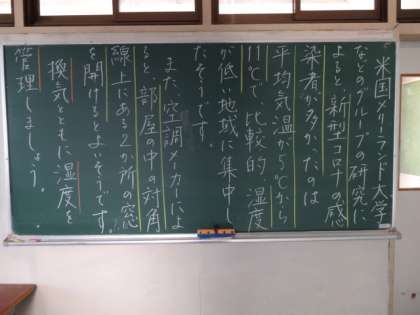 米国メリーランド大学
などのグループの研究に
よると新型コロナの感
染者が多かったのは
平均気温が5℃から
11℃で、比較的湿度
が低い地域に集中し
たそうです。
また、空調メーカーによ
ると部屋の中の対角
線上にある2か所の窓
を開けるとよいそうです。
換気とともに湿度を
管理しましょう。